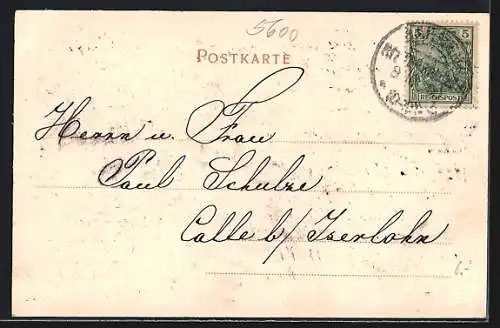 5600
POSTKARTE
5 5
REICHSPOST
Herrn u. Frau
Paul Schulze
Calle b/ Iserlohn